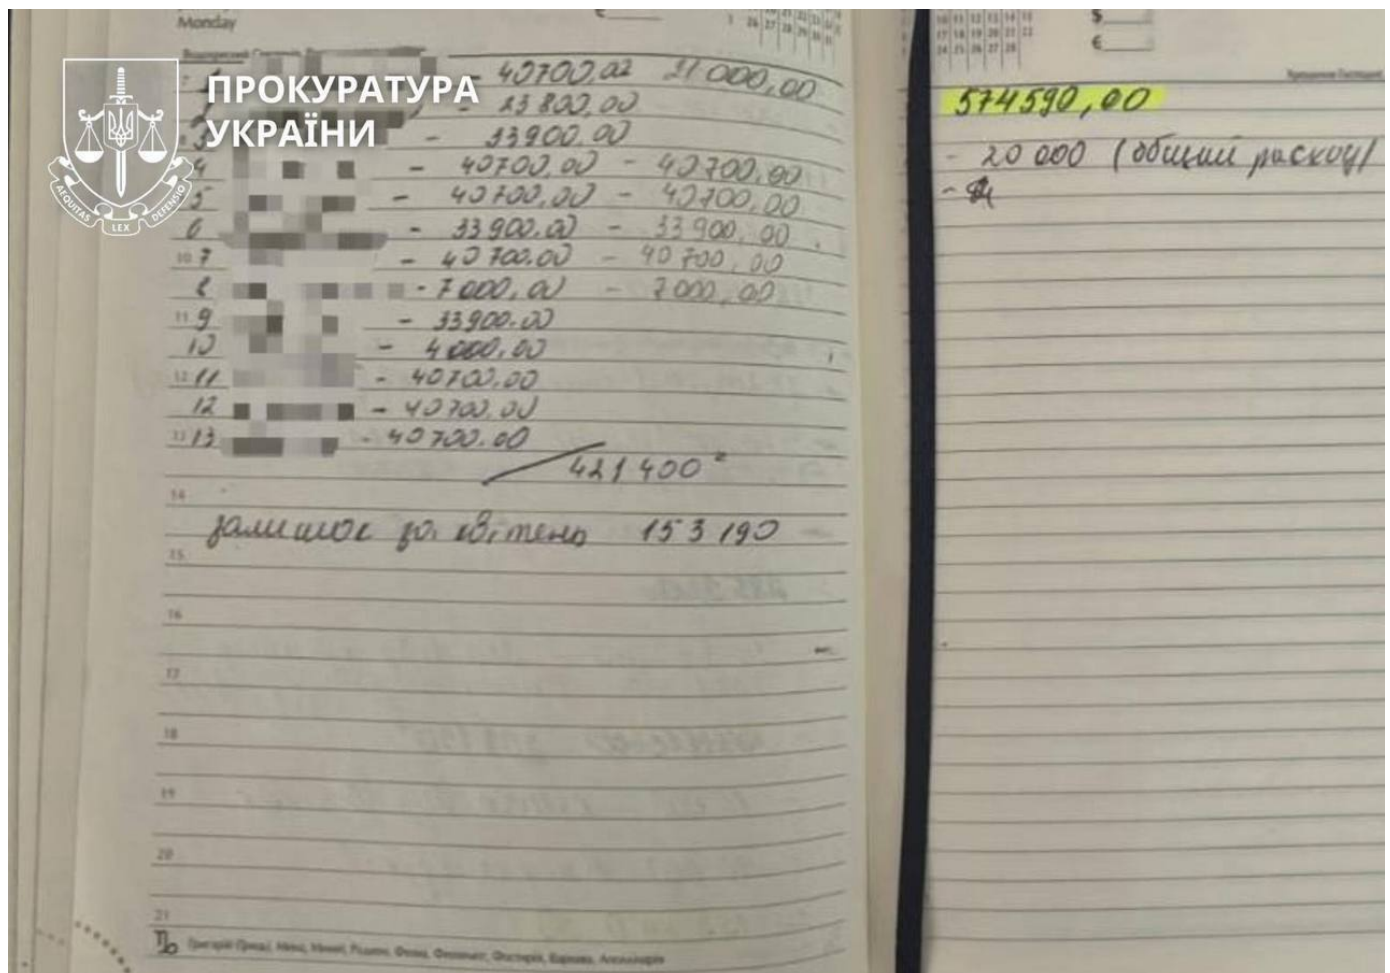 Monday
ПРОКУРАТУРА
УКРАЇНИ
AEQUITAS LEX DEFENSIO
- 40700,00 21 000,00
- 23 800,00
3 - 33900.00
4 - 40700,00 - 40700,00
5 - 40700,00 - 40700,00
6 - 33900.00 - 33900,00
10 7 - 40700.00 - 40700,00
8 - 7000,00 - 7000,00
11 9 - 33900.00
10 - 4000.00
12 11 - 40700.00
12 - 40700.00
13 13 - 40700.00
421 400
14
залишок за квітень 153 190
15
16
17
18
19
20
21
Григорій
€
10 11 12 13 14 15
17 18 19 20 21 22
24 25 26 27 28
$
€
574590,00
- 20 000 (общий расход)
-